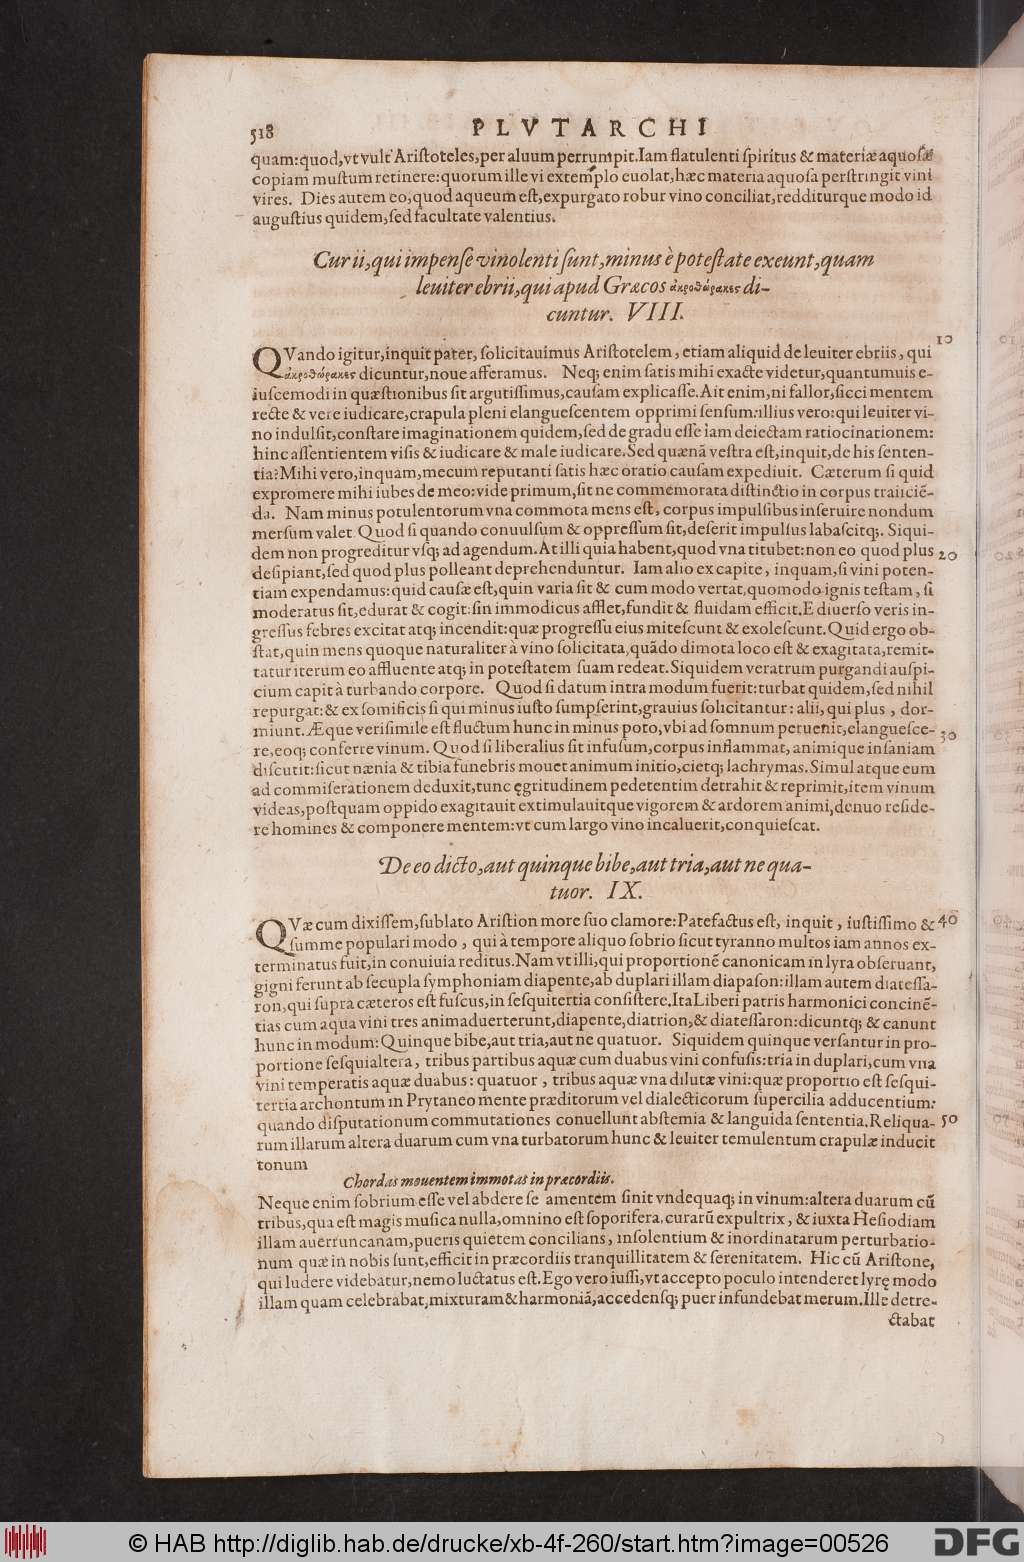 518 PLVTARCHI
quam: quod, vt vult Aristoteles, per aluum perrumpit. Iam flatulenti spiritus & materiæ aquosæ
copiam mustum retinere: quorum ille vi extemplo euolat, hæc materia aquosa perstringit vini
vires. Dies autem eo, quod aqueum est, expurgato robur vino conciliat, redditurque modo id
augustius quidem, sed facultate valentius.
Cur ii, qui impense vinolenti sunt, minus è potestate exeunt, quam
leuiter ebrii, qui apud Græcos ἀκροθώρακες di-
cuntur. VIII.
10
QVando igitur, inquit pater, solicitauimus Aristotelem, etiam aliquid de leuiter ebriis, qui
ἀκροθώρακες dicuntur, noue afferamus. Neq; enim satis mihi exacte videtur, quantumuis e-
iuscemodi in quæstionibus sit argutissimus, causam explicasse. Ait enim, ni fallor, sicci mentem
recte & vere iudicare, crapula pleni elanguescentem opprimi sensum: illius vero: qui leuiter vi-
no indulsit, constare imaginationem quidem, sed de gradu esse iam deiectam ratiocinationem:
hinc assentientem visis & iudicare & male iudicare. Sed quænā vestra est, inquit, de his senten-
tia? Mihi vero, inquam, mecum reputanti satis hæc oratio causam expediuit. Cæterum si quid
expromere mihi iubes de meo: vide primum, sit ne commemorata distinctio in corpus traiiciē-
da. Nam minus potulentorum vna commota mens est, corpus impulsibus inseruire nondum
mersum valet. Quod si quando conuulsum & oppressum sit, deserit impulsus labascitq;. Siqui-
dem non progreditur vsq; ad agendum. At illi quia habent, quod vna titubet: non eo quod plus 20
desipiant, sed quod plus polleant deprehenduntur. Iam alio ex capite, inquam, si vini poten-
tiam expendamus: quid causæ est, quin varia sit & cum modo vertat, quomodo ignis testam, si
moderatus sit, edurat & cogit: sin immodicus afflet, fundit & fluidam efficit. E diuerso veris in-
gressus febres excitat atq; incendit: quæ progressu eius mitescunt & exolescunt. Quid ergo ob-
stat, quin mens quoque naturaliter à vino solicitata, quādo dimota loco est & exagitata, remit-
tatur iterum eo affluente atq; in potestatem suam redeat. Siquidem veratrum purgandi auspi-
cium capit à turbando corpore. Quod si datum intra modum fuerit: turbat quidem, sed nihil
repurgat: & ex somificis si qui minus iusto sumpserint, grauius solicitantur: alii, qui plus, dor-
miunt. Æque verisimile est fluctum hunc in minus poto, vbi ad somnum peruenit, elanguesce- 30
re, eoq; conferre vinum. Quod si liberalius sit infusum, corpus inflammat, animique insaniam
discutit: sicut nænia & tibia funebris mouet animum initio, cietq; lachrymas. Simul atque eum
ad commiserationem deduxit, tunc ęgritudinem pedetentim detrahit & reprimit, item vinum
videas, postquam oppido exagitauit extimulauitque vigorem & ardorem animi, denuo reside-
re homines & componere mentem: vt cum largo vino incaluerit, conquiescat.
De eo dicto, aut quinque bibe, aut tria, aut ne qua-
tuor. IX.
QVæ cum dixissem, sublato Aristion more suo clamore: Patefactus est, inquit, iustissimo & 40
summe populari modo, qui à tempore aliquo sobrio sicut tyranno multos iam annos ex-
terminatus fuit, in conuiuia reditus. Nam vt illi, qui proportionē canonicam in lyra obseruant,
gigni ferunt ab secupla symphoniam diapente, ab duplari illam diapason: illam autem diatessa-
ron, qui supra cæteros est fuscus, in sesquitertia consistere. Ita Liberi patris harmonici concinē-
tias cum aqua vini tres animaduerterunt, diapente, diatrion, & diatessaron: dicuntq; & canunt
hunc in modum: Quinque bibe, aut tria, aut ne quatuor. Siquidem quinque versantur in pro-
portione sesquialtera, tribus partibus aquæ cum duabus vini confusis: tria in duplari, cum vna
vini temperatis aquæ duabus: quatuor, tribus aquæ vna dilutæ vini: quæ proportio est sesqui-
tertia archontum in Prytaneo mente præditorum vel dialecticorum supercilia adducentium:
quando disputationum commutationes conuellunt abstemia & languida sententia. Reliqua- 50
rum illarum altera duarum cum vna turbatorum hunc & leuiter temulentum crapulæ inducit
tonum
Chordas mouentem immotas in præcordiis.
Neque enim sobrium esse vel abdere se amentem sinit vndequaq; in vinum: altera duarum cū
tribus, qua est magis musica nulla, omnino est soporifera, curarū expultrix, & iuxta Hesiodiam
illam auerruncanam, pueris quietem concilians, insolentium & inordinatarum perturbatio-
num quæ in nobis sunt, efficit in præcordiis tranquillitatem & serenitatem. Hic cū Aristone,
qui ludere videbatur, nemo luctatus est. Ego vero iussi, vt accepto poculo intenderet lyrę modo
illam quam celebrabat, mixturam & harmoniā, accedensq; puer infundebat merum. Ille detre-
ctabat
© HAB http://diglib.hab.de/drucke/xb-4f-260/start.htm?image=00526 DFG